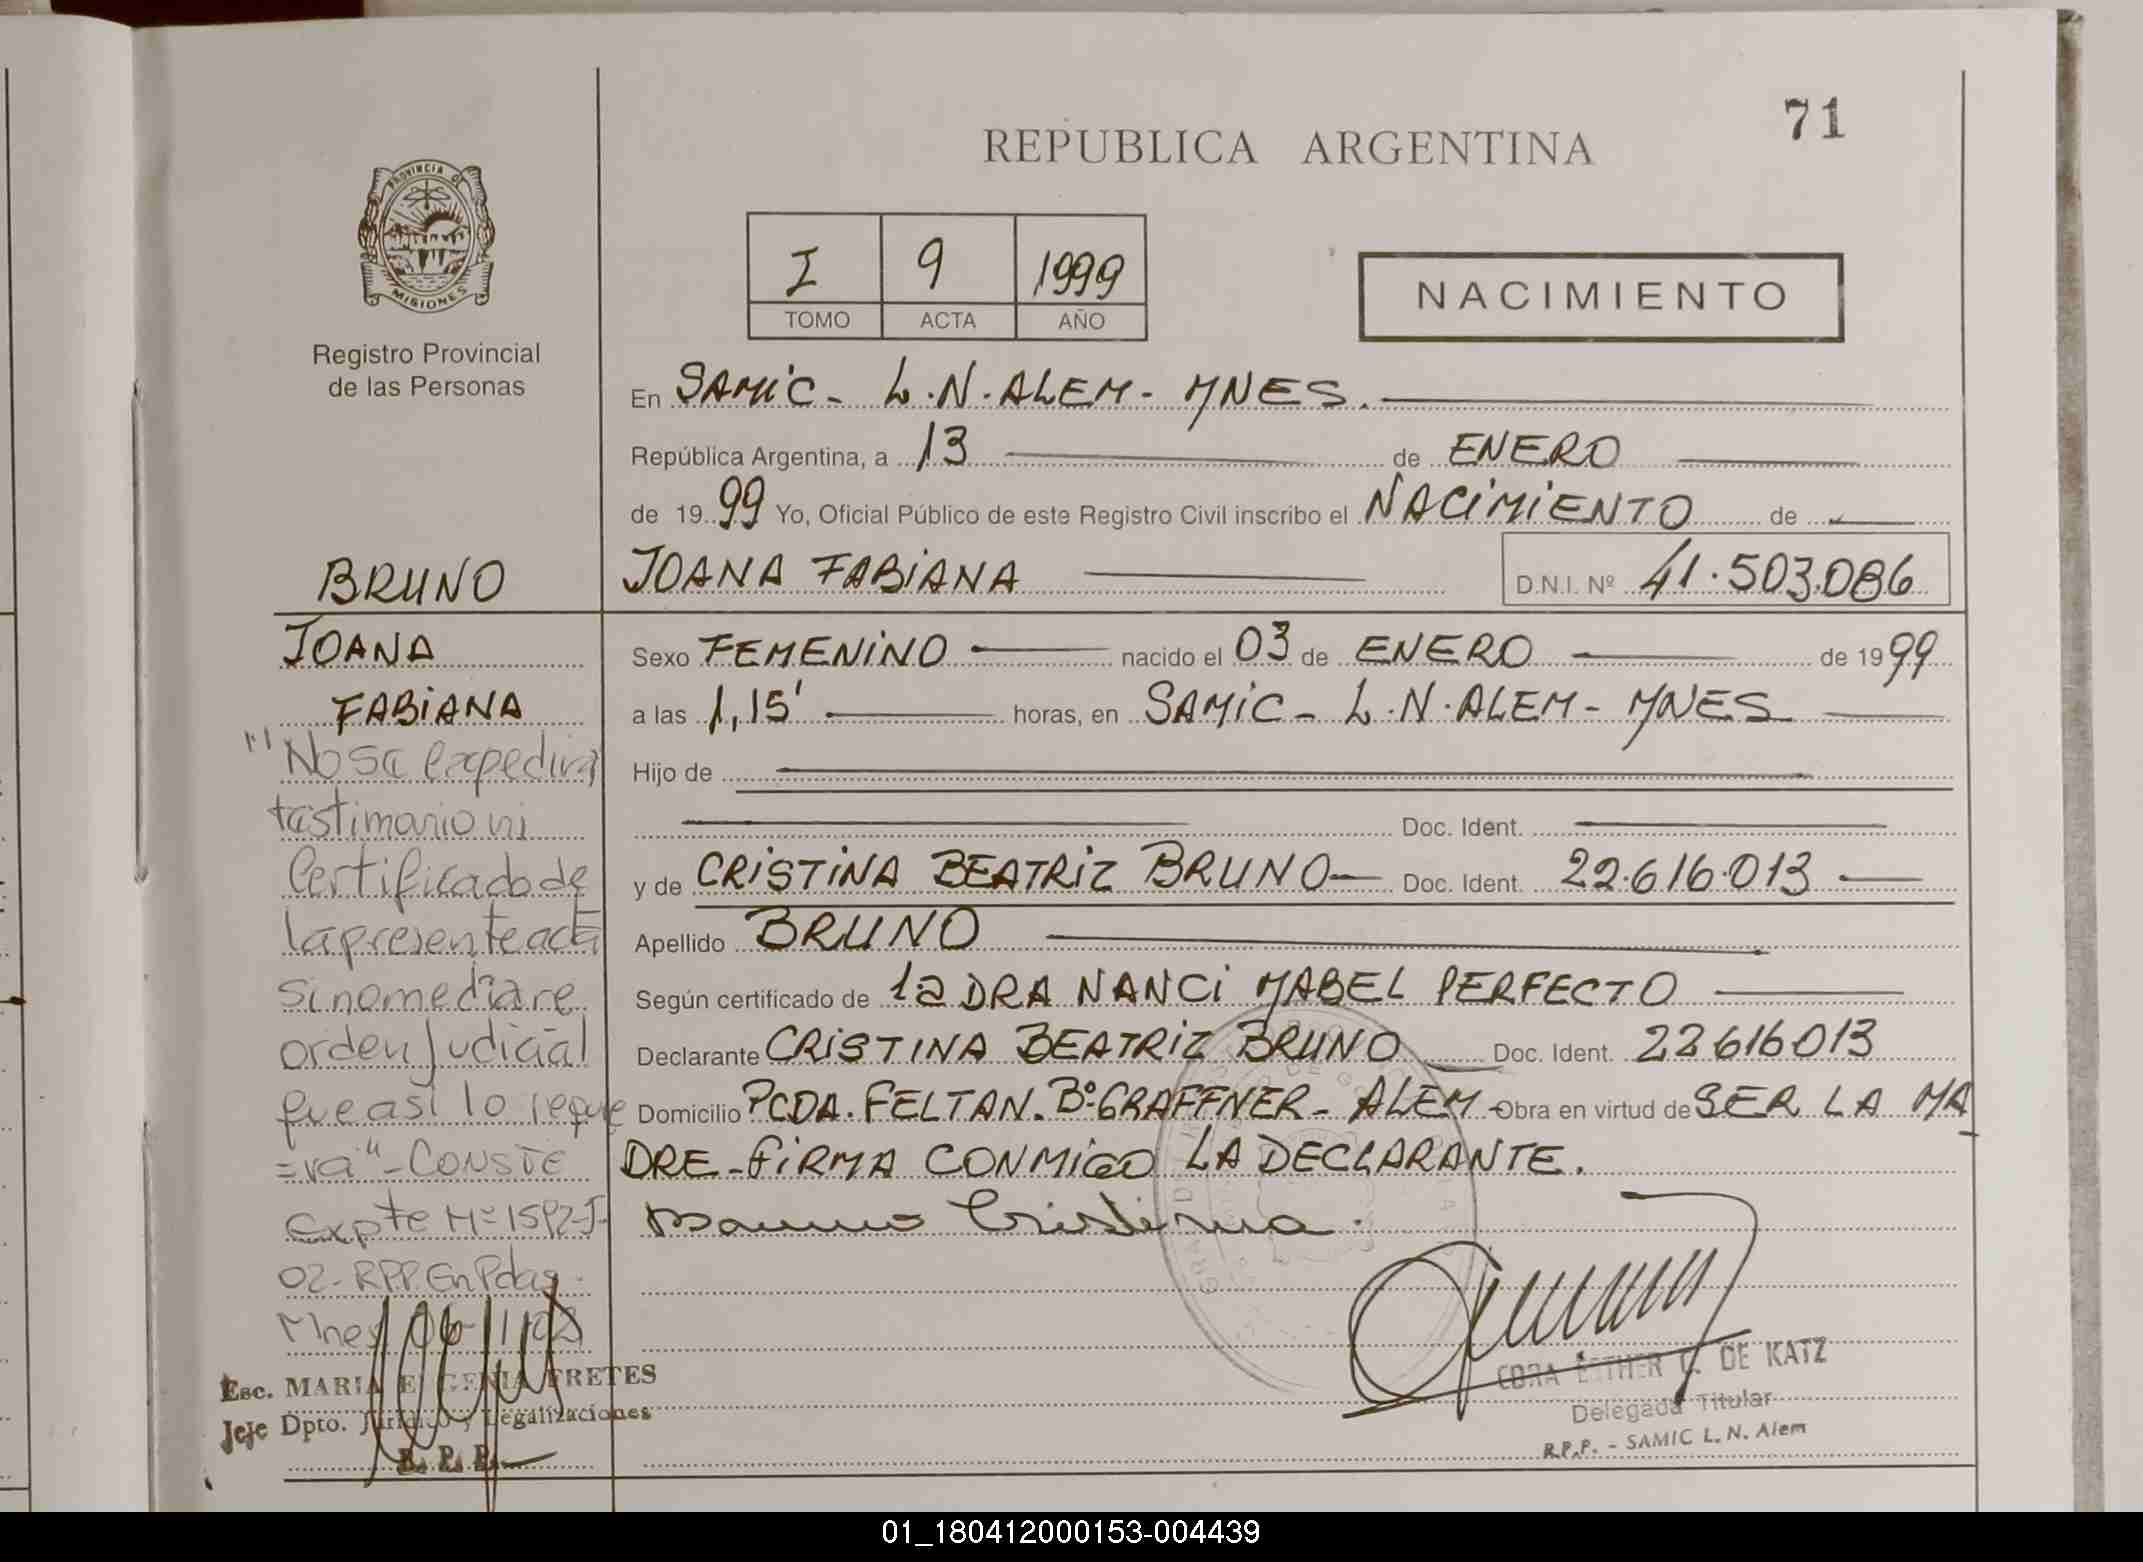 71
REPUBLICA ARGENTINA
PROVINCIA DE
MISIONES
Registro Provincial
de las Personas
I 9 1999
TOMO ACTA AÑO
NACIMIENTO
En SAMIC - L.N. ALEM - MNES.
República Argentina, a 13 de ENERO
de 1999 Yo, Oficial Público de este Registro Civil inscribo el NACIMIENTO de
BRUNO JOANA FABIANA D.N.I. Nº 41.503.086
JOANA
FABIANA
Sexo FEMENINO nacido el 03 de ENERO de 1999
a las 1,15' horas, en SAMIC - L.N. ALEM - MNES
Hijo de
Doc. Ident.
y de CRISTINA BEATRIZ BRUNO Doc. Ident. 22.616.013
Apellido BRUNO
Según certificado de la DRA NANCI MABEL PERFECTO
Declarante CRISTINA BEATRIZ BRUNO Doc. Ident. 22616013
Domicilio PCDA. FELTAN. Bº GRAFFNER - ALEM - Obra en virtud de SER LA MA
DRE - FIRMA CONMIGO LA DECLARANTE.
Cristina
"No se expedirá
testimonio ni
Certificado de
la presente acta
si no mediare
orden judicial
que así lo reque
=ra" - CONSTE
Expte Nº 1592-J-
02 - RPP. En Pdas
Mnes
Esc. MARIA EUGENIA FRETES
Jefe Dpto. Jurídico y Legalizaciones
R. P. P.
CORA ESTHER C. DE KATZ
Delegada Titular
R.P.P. - SAMIC L. N. Alem
01_180412000153-004439